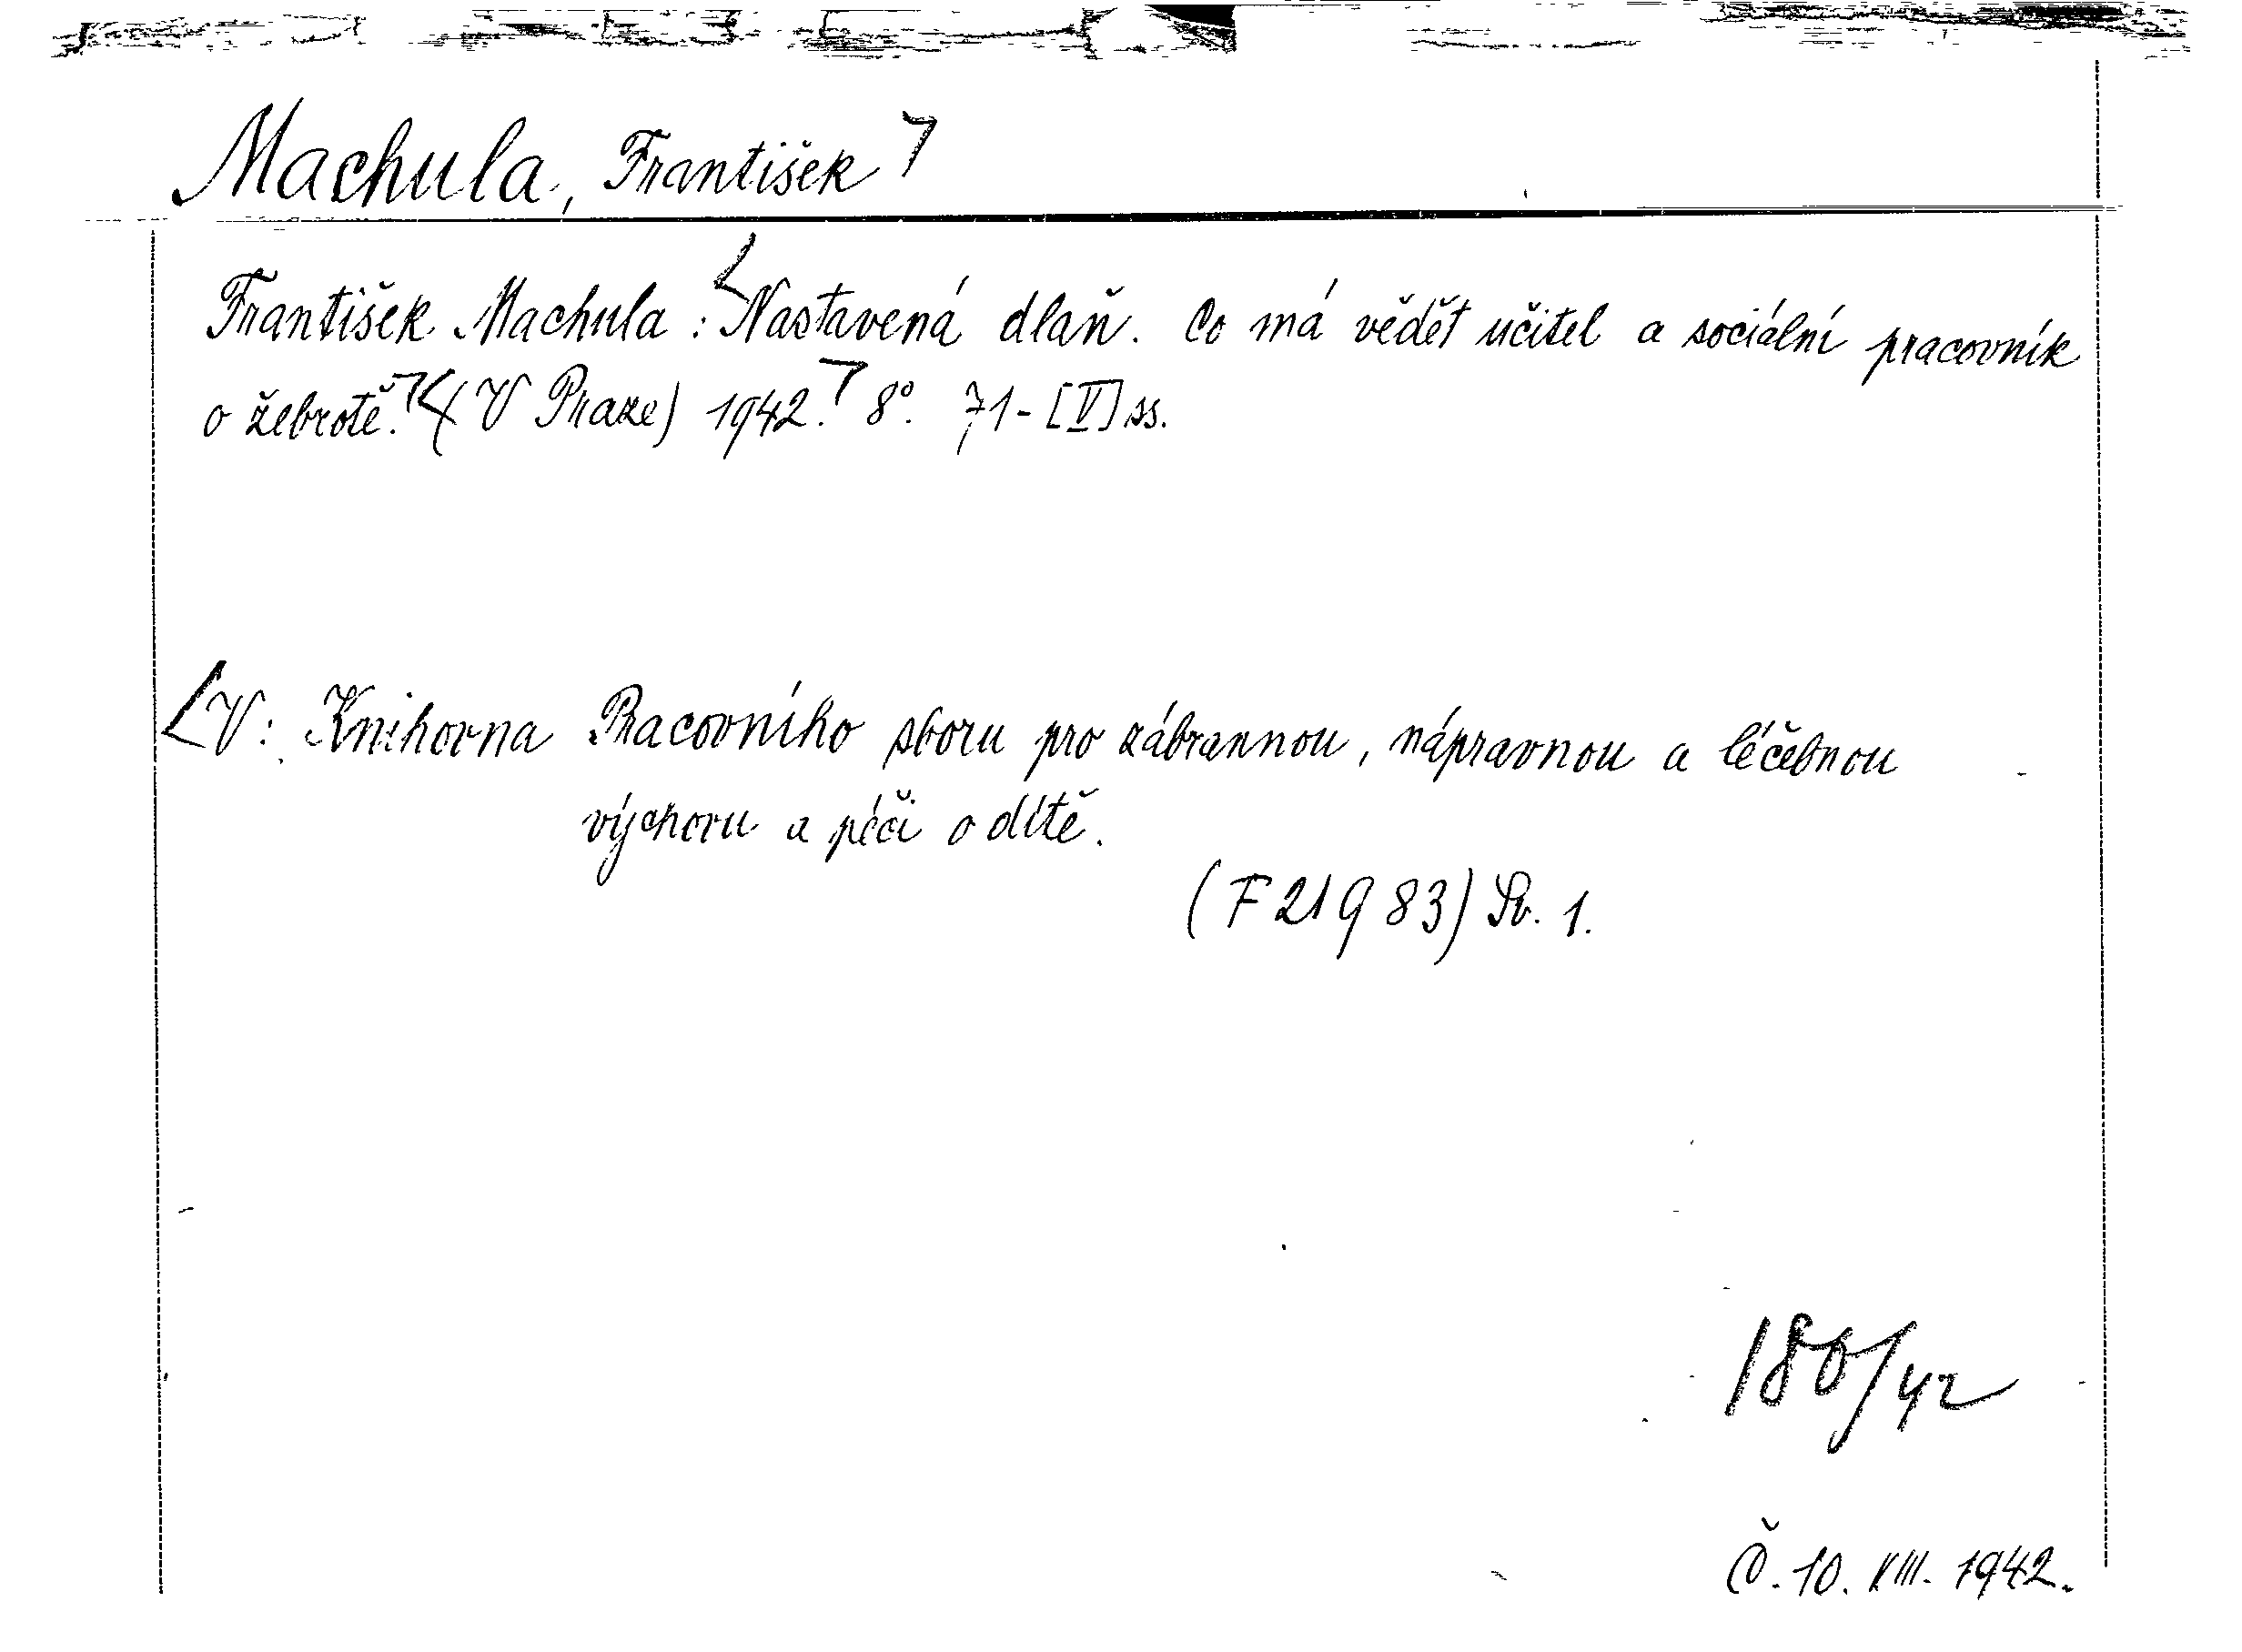 Machula, František
František Machula: Nastavená dlaň. Co má vědět učitel a sociální pracovník
o žebrotě. (V Praze) 1942. 8°. 71-[V] ss.
V: Knihovna Pracovního sboru pro zábrannou, nápravnou a léčebnou
výchovu a péči o dítě.
(F 21983) Sv. 1.
180/42
Č. 10. VIII. 1942.